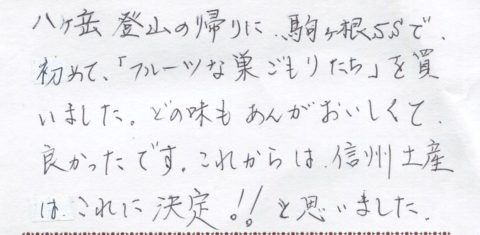 八ヶ岳登山の帰りに、駒ヶ根SSで、
初めて、「フルーツな巣ごもりたち」を買
いました。どの味もあんがおいしくて、
良かったです。これからは、信州土産
は、これに決定!!と思いました。